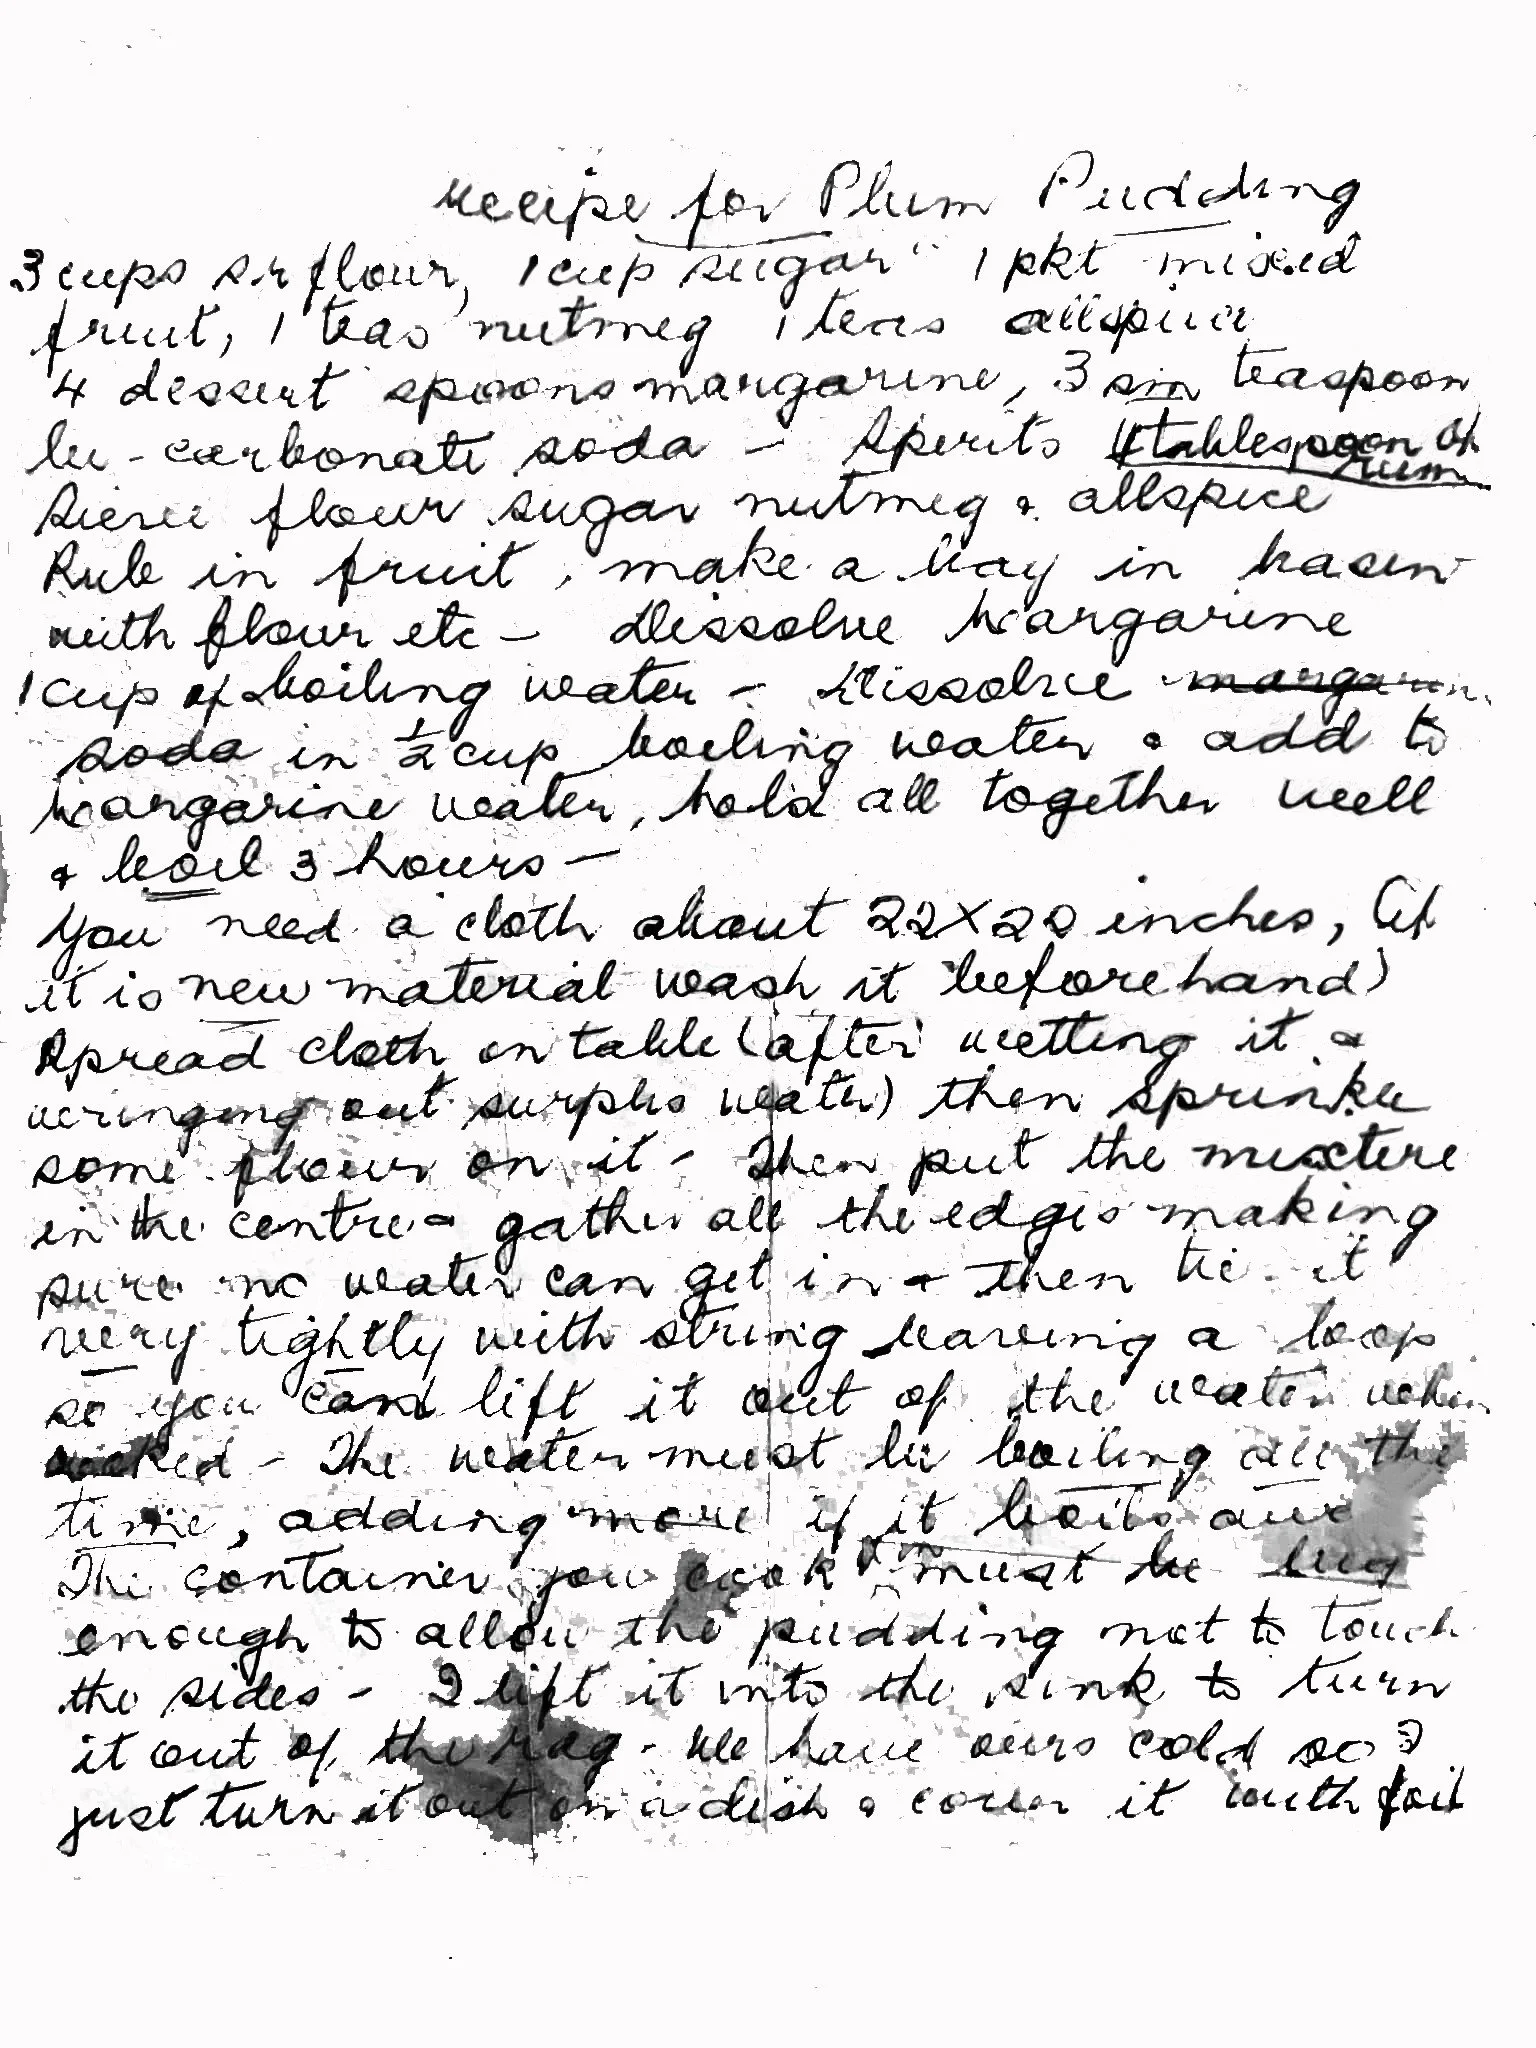 Recipe for Plum Pudding
3 cups sr flour, 1 cup sugar 1 pkt mixed
fruit, 1 teas nutmeg 1 teas allspice
4 dessert spoons margarine, 3 sm teaspoon
bi-carbonate soda - Spirits 4 tablespoon of
rum
Sieve flour sugar nutmeg & allspice
Rub in fruit, make a bay in basin
with flour etc - Dissolve Margarine
1 cup of boiling water - Dissolve margarine
soda in ½ cup boiling water & add to
Margarine water, hold all together well
& boil 3 hours -
You need a cloth about 22x22 inches, (if
it is new material wash it beforehand)
Spread cloth on table (after wetting it &
wringing out surplus water) then sprinkle
some flour on it - Then put the mixture
in the centre & gather all the edges making
sure no water can get in & then tie it
very tightly with string leaving a loop
so you can lift it out of the water when
cooked - The water must be boiling all the
time, adding more if it boils away
The container you cook it in must be big
enough to allow the pudding not to touch
the sides - I lift it into the sink to turn
it out of the rag - We have ours cold so I
just turn it out on a dish & cover it with foil